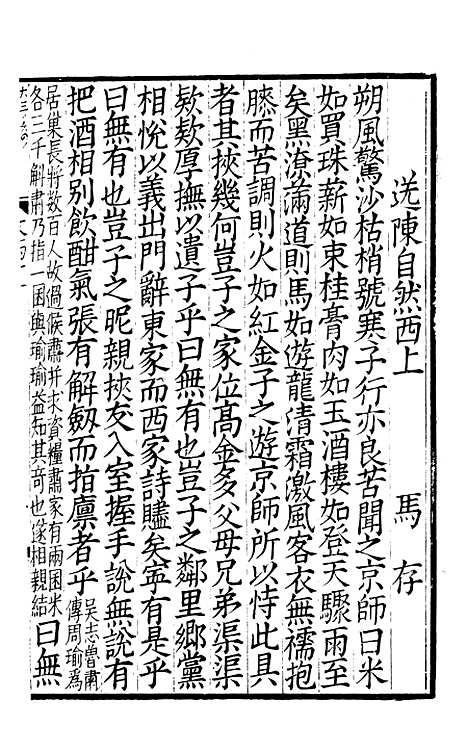 送陳自然西上　馬存
朔風驚沙枯梢號寒子行亦良苦聞之京師曰米
如買珠薪如束桂膏肉如玉酒樓如登天驟雨至
矣黑潦滿道則馬如遊龍清霜激風客衣無襦抱
膝而苦調則火如紅金子之遊京師所以恃此具
者其挾幾何豈子之家位高金多父母兄弟渠渠
欵欵厚撫以遺子乎曰無有也豈子之鄰里鄉黨
相悅以義出門辭東家而西家詩贐矣寧有是乎
曰無有也豈子之昵親挾友入室握手說無說有
把酒相別飲酣氣張有解劔而指廪者乎吳志曾肅傳周瑜爲
居巢長將數百人故過候肅并求資糧肅家有兩囷米各三千斛肅乃指一囷與瑜瑜益知其竒也遂相親結曰無